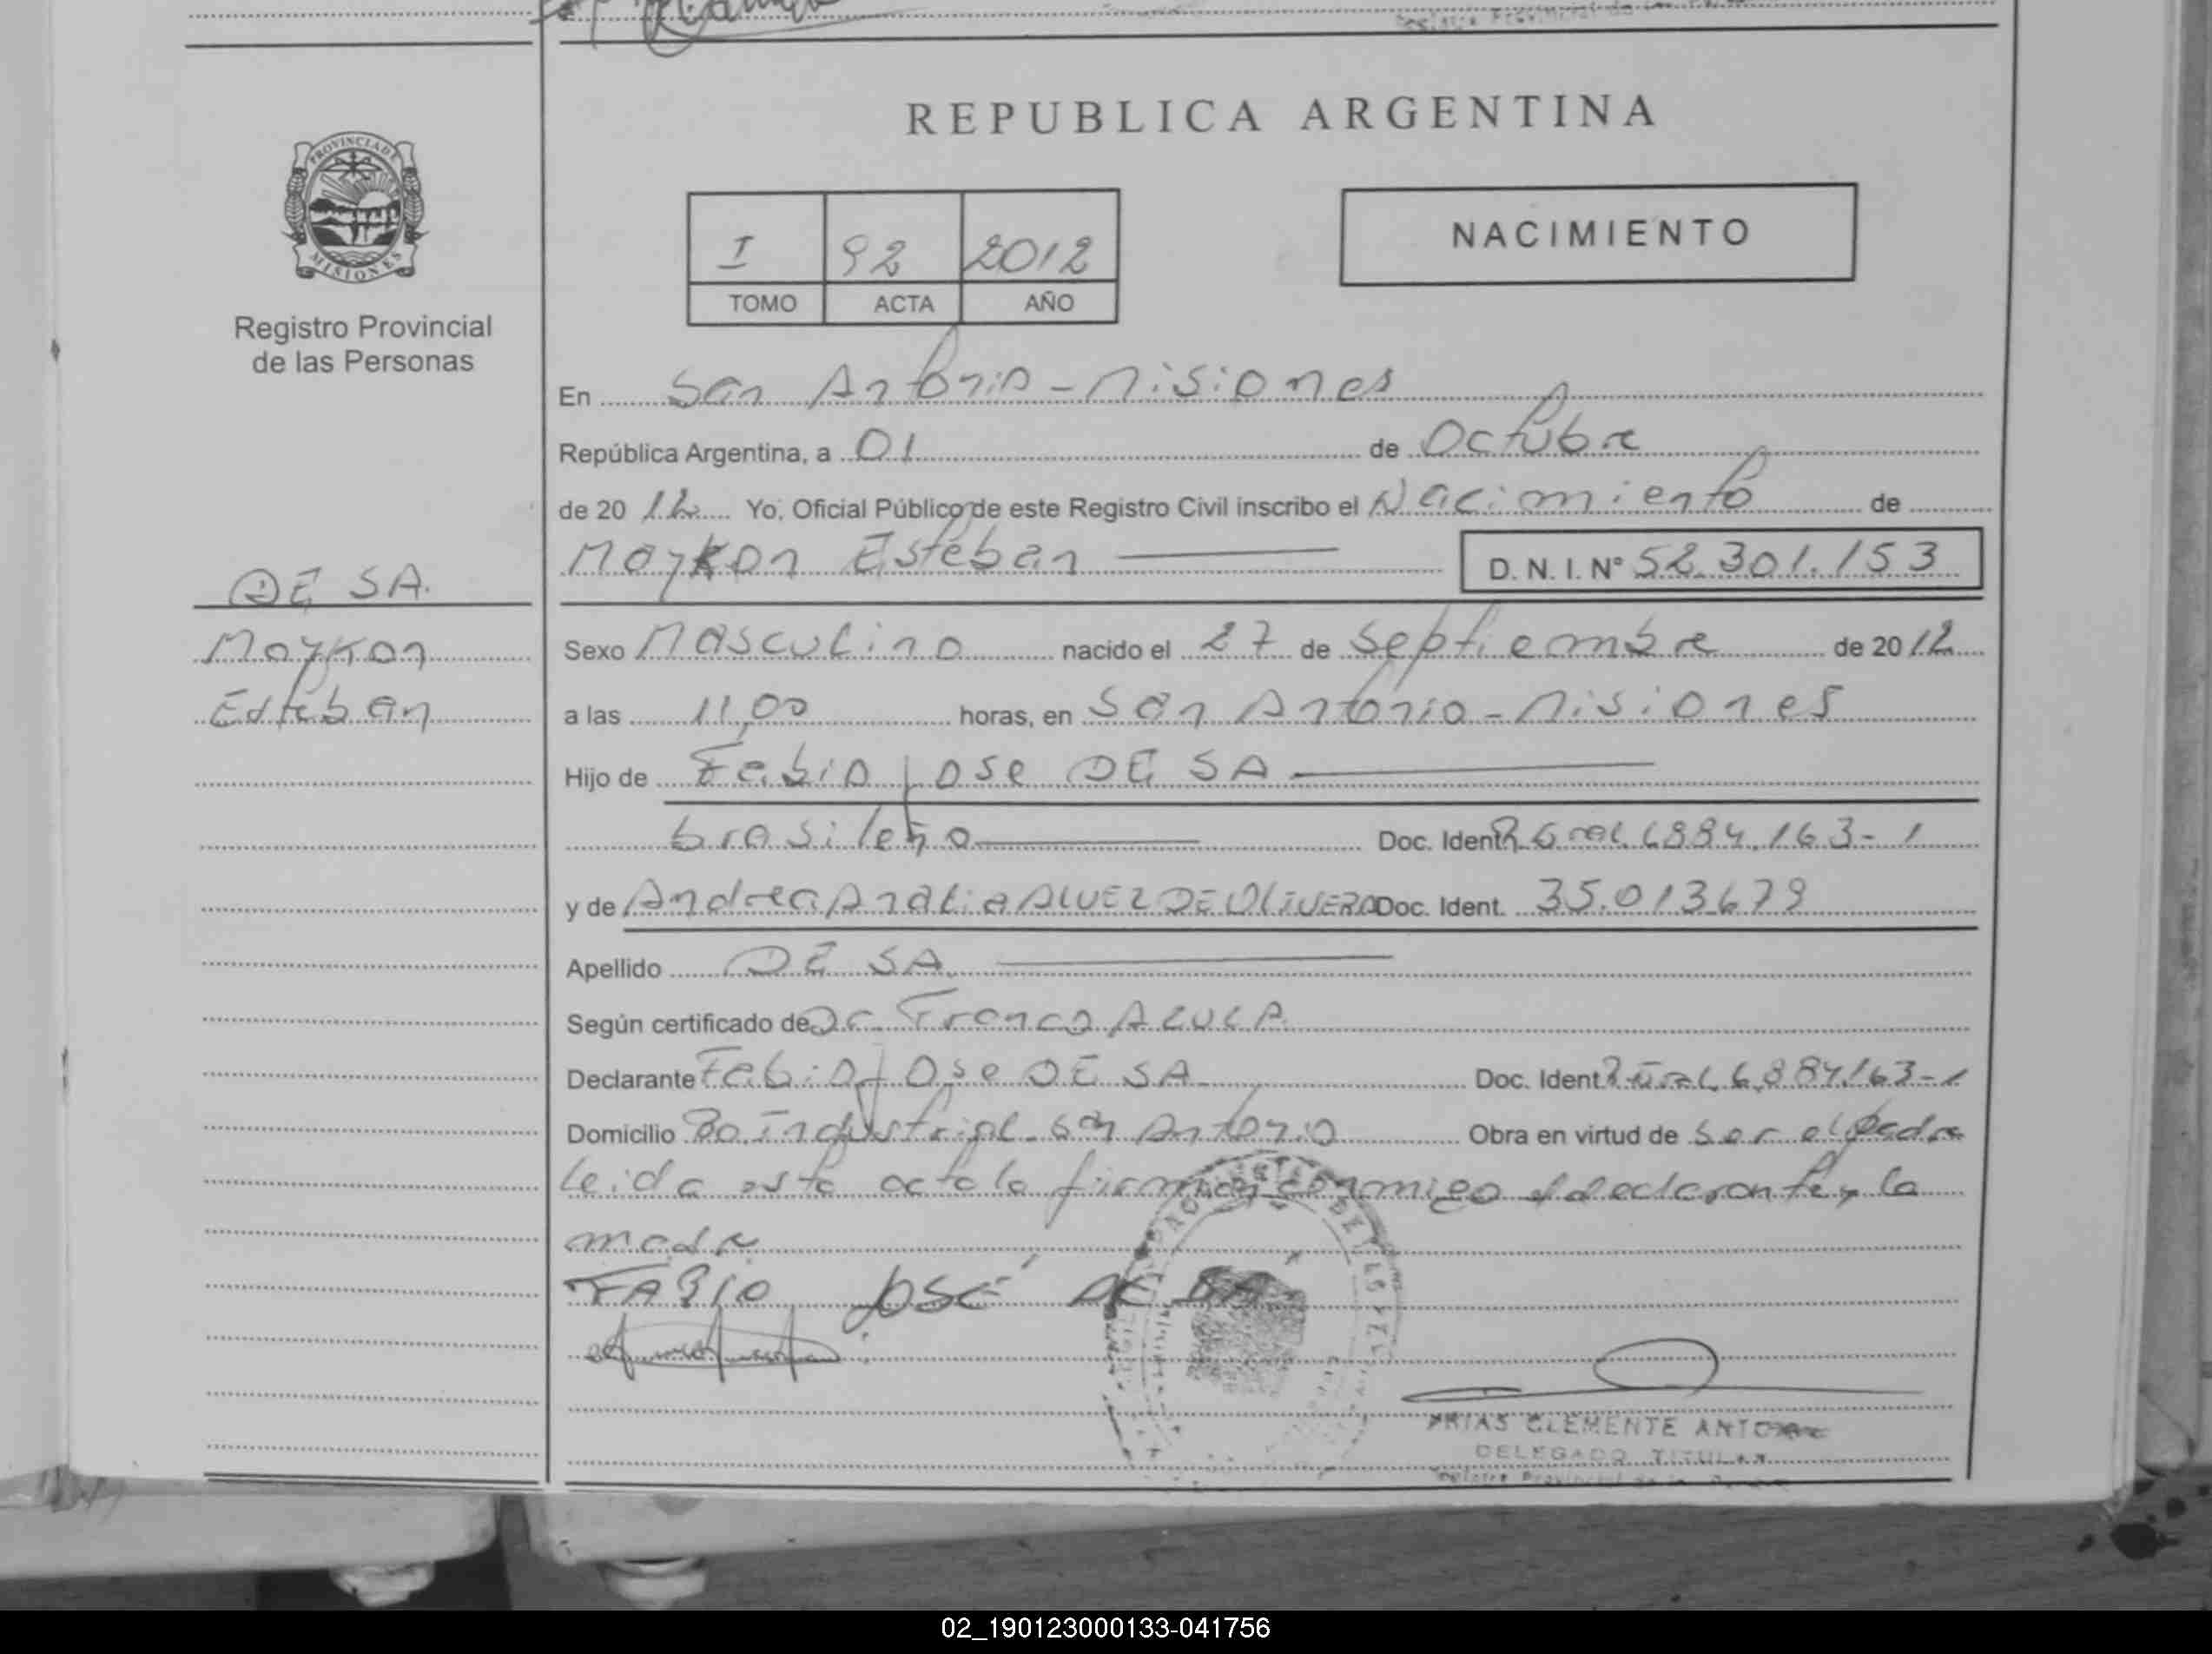 REPUBLICA ARGENTINA
PROVINCIA DE
MISIONES
Registro Provincial
de las Personas
I 92 2012
TOMO ACTA AÑO
NACIMIENTO
En San Antonio - Misiones
República Argentina, a 01 de Octubre
de 20 12 Yo, Oficial Público de este Registro Civil inscribo el Nacimiento de
Maykon Esteban D. N. I. Nº 52.301.153
DE SA.
Maykon
Esteban
Sexo Masculino nacido el 27 de Septiembre de 20 12
a las 11,00 horas, en San Antonio - Misiones
Hijo de Fabio Jose DE SA
brasileño Doc. Ident. R Gral 6884.163-1
y de Andrea Analia ALVEZ DE OLIVERA Doc. Ident. 35.013.679
Apellido DE SA
Según certificado de Dr. Franco
Declarante Fabio Jose DE SA Doc. Ident. Gral 6.884.163-1
Domicilio Bo. Industrial - San Antonio Obra en virtud de Ser el padre
leida esta acta la firman conmigo el declarante y la
madre
FABIO JOSÉ DE SA
ARIAS CLEMENTE ANTONIO
DELEGADO TITULAR
Registro Provincial de las
02_190123000133-041756